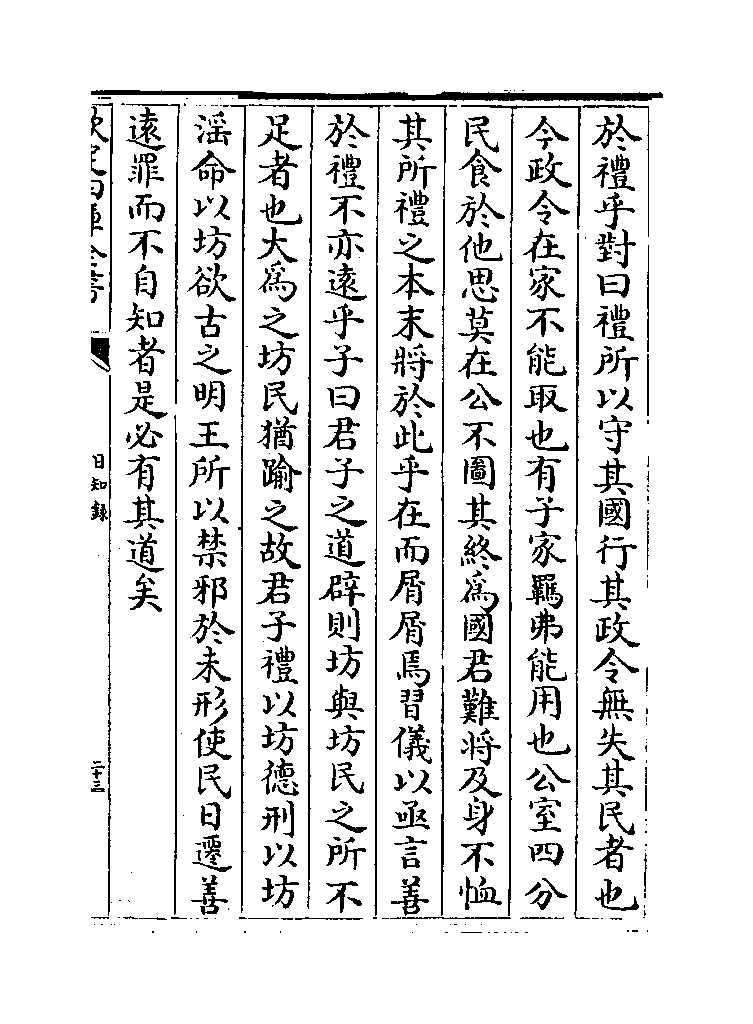 於禮乎對曰禮所以守其國行其政令無失其民者也
今政令在家不能取也有子家羈弗能用也公室四分
民食於他思莫在公不圖其終為國君難將及身不恤
其所禮之本末將於此乎在而屑屑焉習儀以亟言善
於禮不亦遠乎子曰君子之道辟則坊與坊民之所不
足者也大為之坊民猶踰之故君子禮以坊德刑以坊
淫命以坊欲古之明王所以禁邪於未形使民日遷善
遠罪而不自知者是必有其道矣
欽定四庫全書
日知錄
二十三